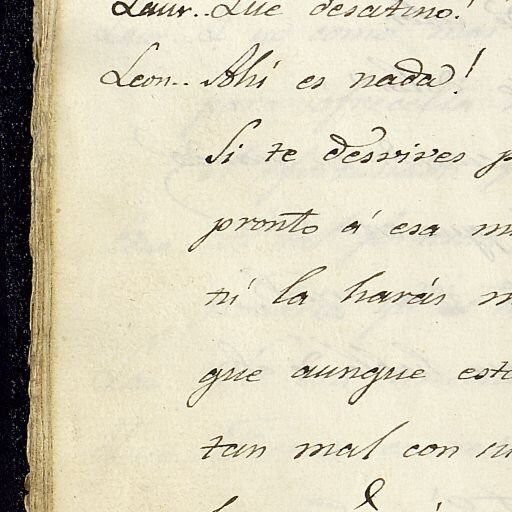 Laur.. Que desatino!
Leon.. Ahí es nada!
Si te desvives p
pronto á esa mu
tú la harás m
que aunque está
tan mal con su